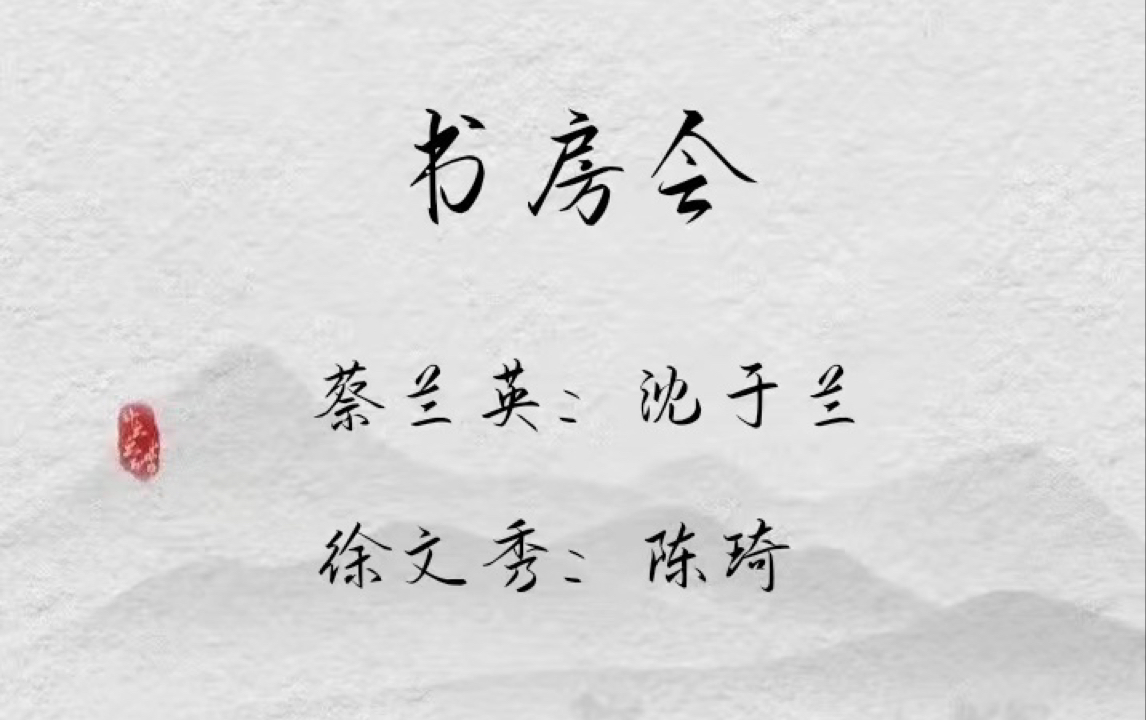 书房会
蔡兰英：沈于兰
徐文秀：陈琦